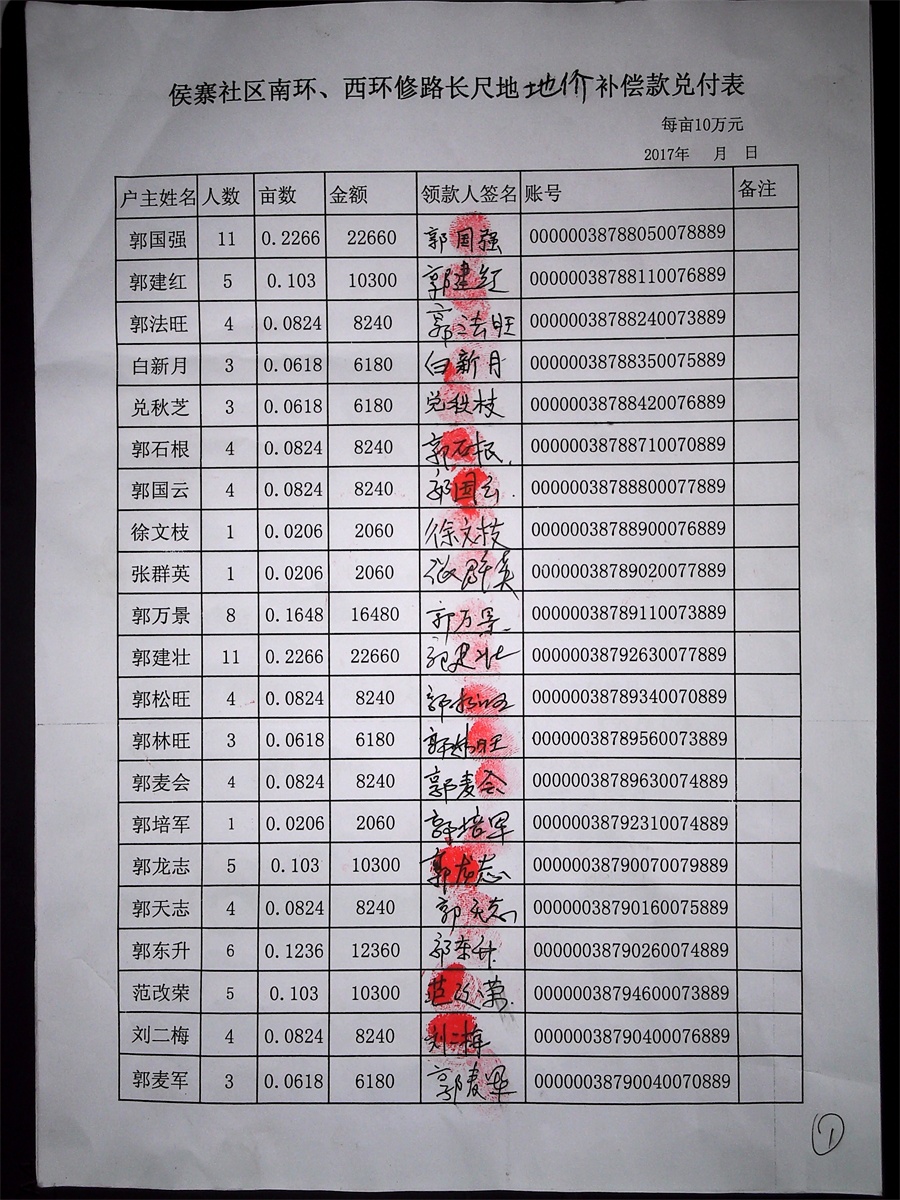 侯寨社区南环、西环修路长尺地地价补偿款兑付表
每亩10万元
2017年 月 日
户主姓名 人数 亩数 金额 领款人签名 账号 备注
郭国强 11 0.2266 22660 郭国强 00000038788050078889
郭建红 5 0.103 10300 郭建红 00000038788110076889
郭法旺 4 0.0824 8240 郭法旺 00000038788240073889
白新月 3 0.0618 6180 白新月 00000038788350075889
兑秋芝 3 0.0618 6180 兑秋枝 00000038788420076889
郭石根 4 0.0824 8240 郭石根 00000038788710070889
郭国云 4 0.0824 8240 郭国云 00000038788800077889
徐文枝 1 0.0206 2060 徐文枝 00000038788900076889
张群英 1 0.0206 2060 张群英 00000038789020077889
郭万景 8 0.1648 16480 郭万景 00000038789110073889
郭建壮 11 0.2266 22660 郭建壮 00000038792630077889
郭松旺 4 0.0824 8240 郭松旺 00000038789340070889
郭林旺 3 0.0618 6180 郭林旺 00000038789560073889
郭麦会 4 0.0824 8240 郭麦会 00000038789630074889
郭培军 1 0.0206 2060 郭培军 00000038792310074889
郭龙志 5 0.103 10300 郭龙志 00000038790070079889
郭天志 4 0.0824 8240 郭天志 00000038790160075889
郭东升 6 0.1236 12360 郭东升 00000038790260074889
范改荣 5 0.103 10300 范改荣 00000038794600073889
刘二梅 4 0.0824 8240 刘二梅 00000038790400076889
郭麦军 3 0.0618 6180 郭麦军 00000038790040070889
1